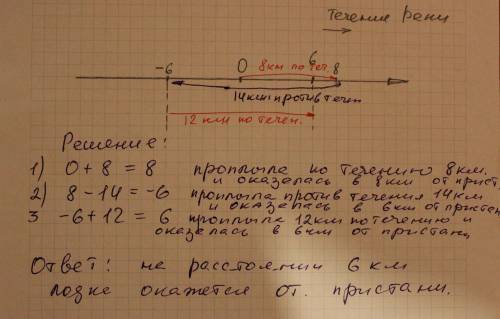 течение реки
-6 0 8км по теч. 6 8
14км против течен
12 км по течен.
Решение:
1) 0+8=8 проплыла по течению 8км.
и оказалась в 8км от прист
2) 8-14=-6 проплыла против течения 14км
и оказалась в 6км от пристан
3 -6+12=6 проплыла 12км по течению и
оказалась в 6км от пристани
Ответ: на расстоянии 6 км
лодке окажется от. пристани.